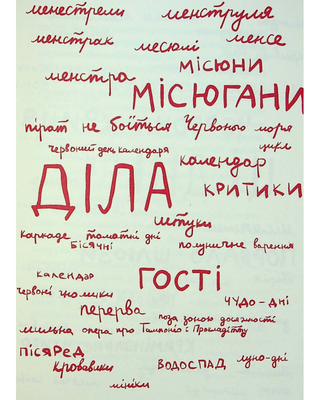 менестрелі менструля
менстрак месюлі менсе
менстра місюни
місюгани
пірат не боїться Червоного моря
червоний день календаря цикл
календар
ДІЛА критики
штуки
каркаде томатні дні
бісячні полуничне варення
календар гості
червоні гномики чудо-дні
перерва поза зоною досяжності
мильна опера про Тампонію і Прокладітту
пісяРед
кровавики водоспад луно-дні
мініки